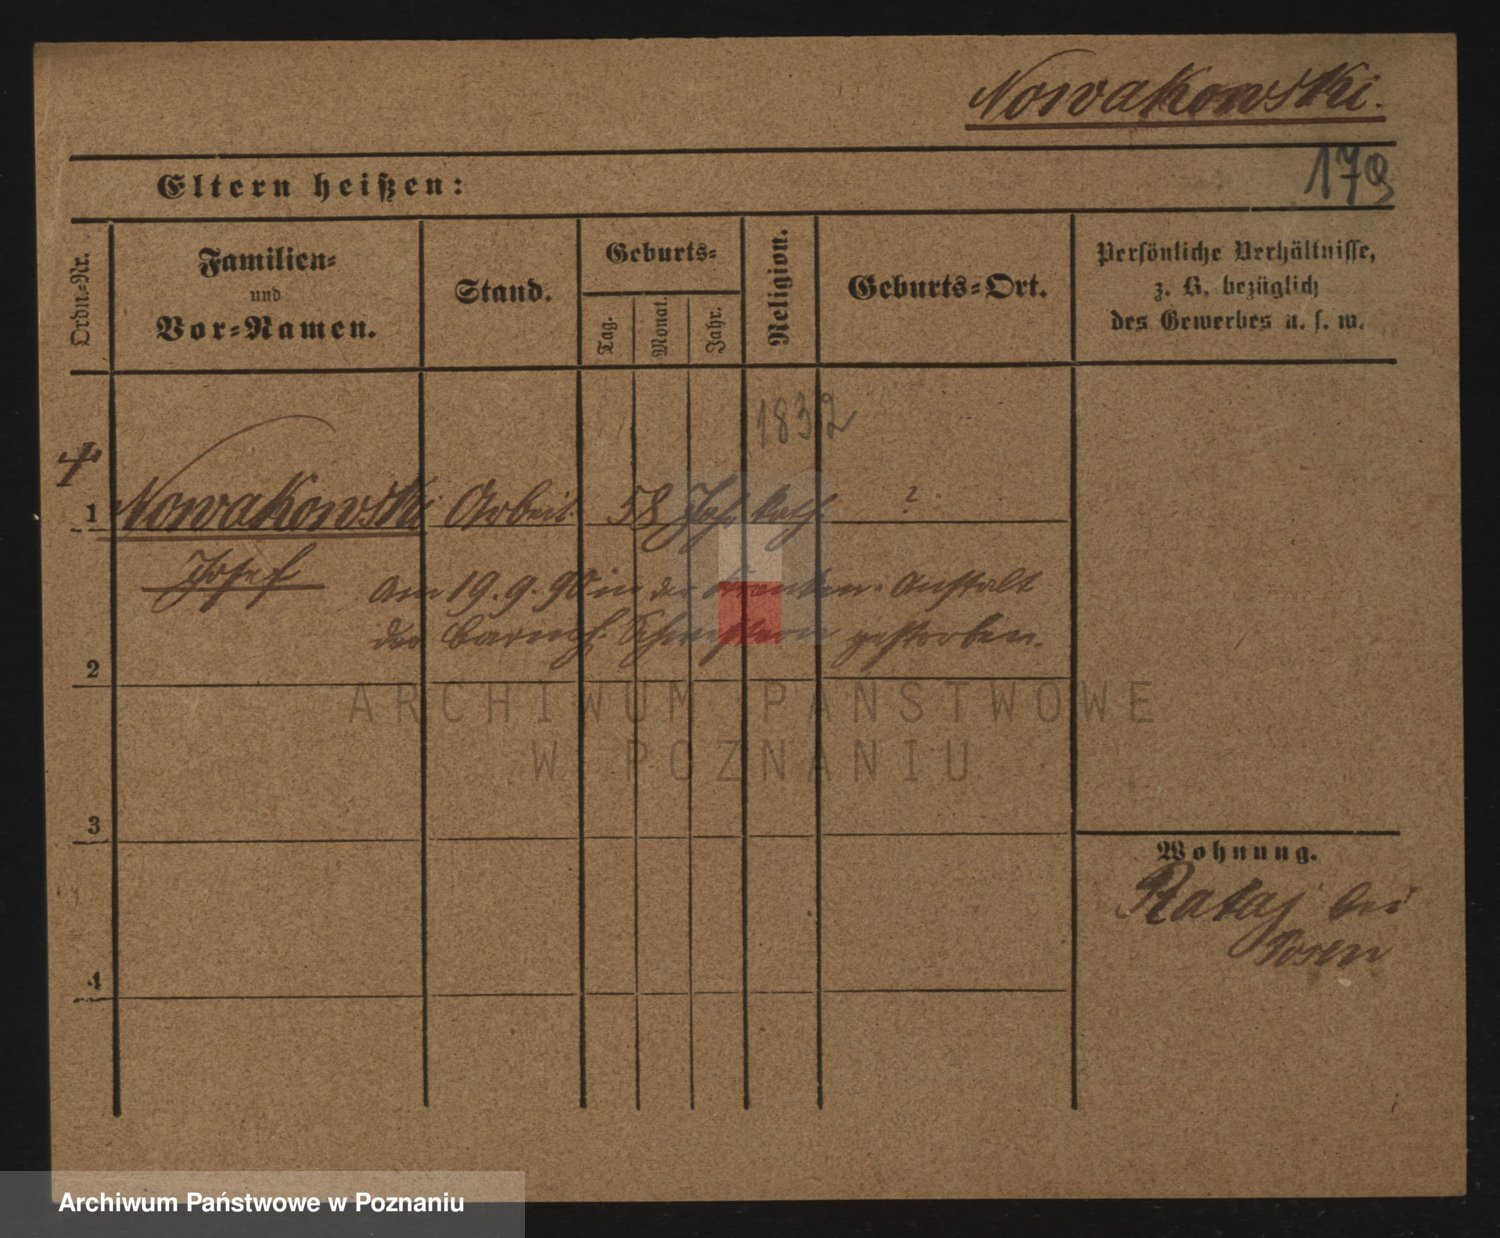 Nowakowski.
179
Eltern heißen:
Ordn.-Nr.
Familien-
und
Vor-Namen.
Stand.
Geburts-
Tag.
Monat.
Jahr.
Religion.
Geburts-Ort.
Persönliche Verhältnisse,
z. B. bezüglich
des Gewerbes u. s. w.
1832
1 Nowakowski Arbeit. 58 Jahr kath. ?
Josef
Am 19.9.90 in der Kranken-Anstalt
der barmh. Schwestern gestorben.
2
ARCHIWUM PAŃSTWOWE
W POZNANIU
3
Wohnung.
Rataj bei
Posen
4
Archiwum Państwowe w Poznaniu